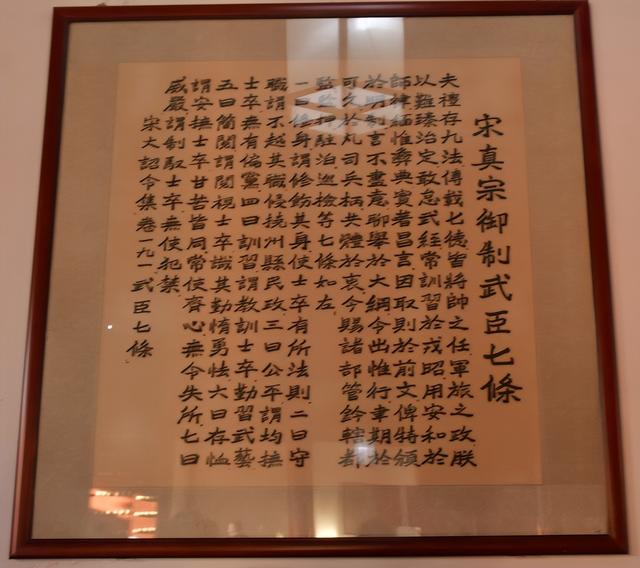 宋真宗御制武臣七條
夫禮存九法傳載七德皆將帥之任軍旅之政朕
以難臻治定敢怠式經常訓習於戎昭用安和於
師律緬惟彝典實著昌言因取則於前文俾特頒
於明制言不盡意聊舉於大綱令出惟行聿期於
可久於凡司兵柄共體於衷今賜諸部管鈐轄都
監監押駐泊巡檢等七條如左
一曰修身謂修飭其身使士卒有所法則二曰守
職謂不越其職侵撓州縣民政三曰公平謂均撫
士卒無有偏黨四曰訓習謂教訓士卒勤習武藝
五曰簡閱謂閱視士卒識其勤惰勇怯六曰存恤
謂安撫士卒甘苦皆同常使齊心無令失所七曰
威嚴謂制馭士卒無使犯禁
宋大詔令集卷一九一武臣七條